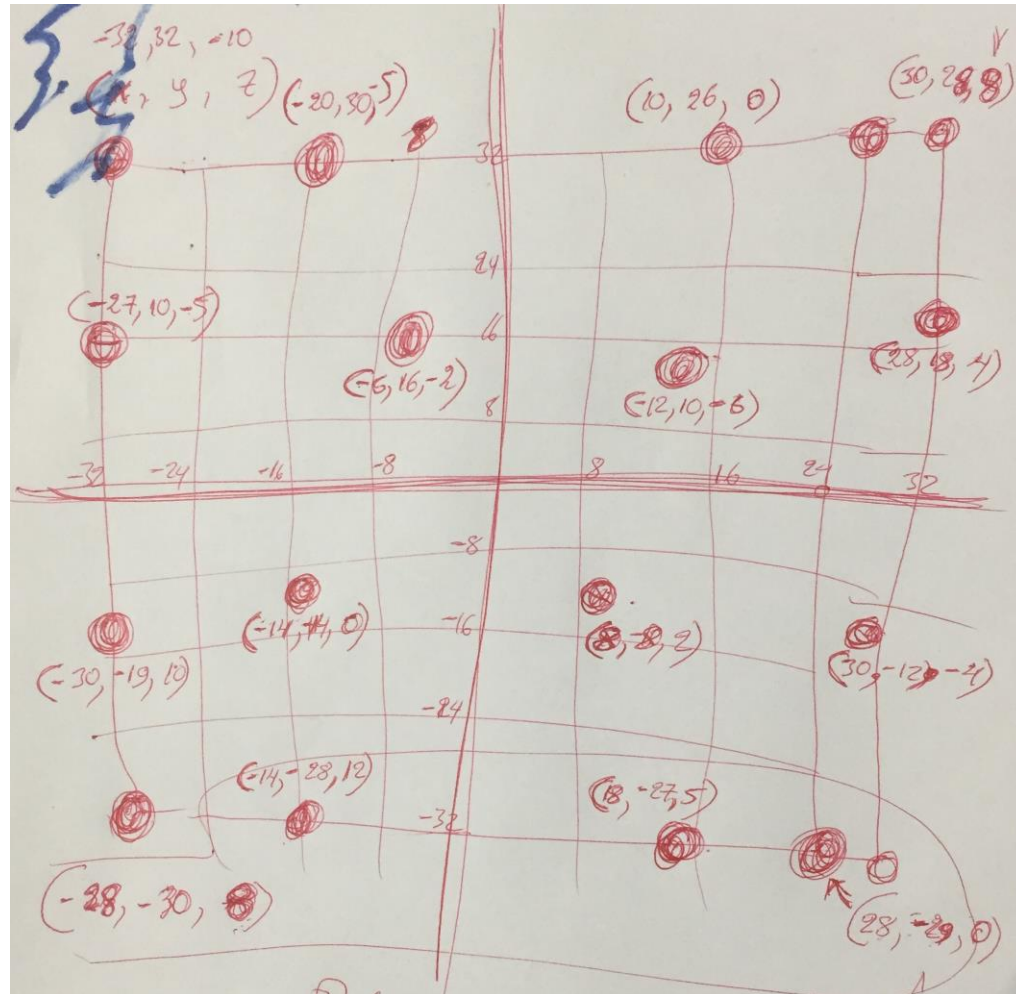 -32, 32, -10
(x, y, z) (-20, 30, -5) (10, 26, 0) (30, 28, 8)
32
24
(-27, 10, -5)
16
(-6, 16, -2) (28, 18, -4)
(-12, 10, -6)
8
-32 -24 -16 -8 8 16 24 32
-8
(-14, -14, 0) -16 (8, -8, 2)
(-30, -19, 10) (30, -12, -4)
-24
(-14, -28, 12) (18, -27, 5)
-32
(-28, -30, 8) (28, -29, 0)